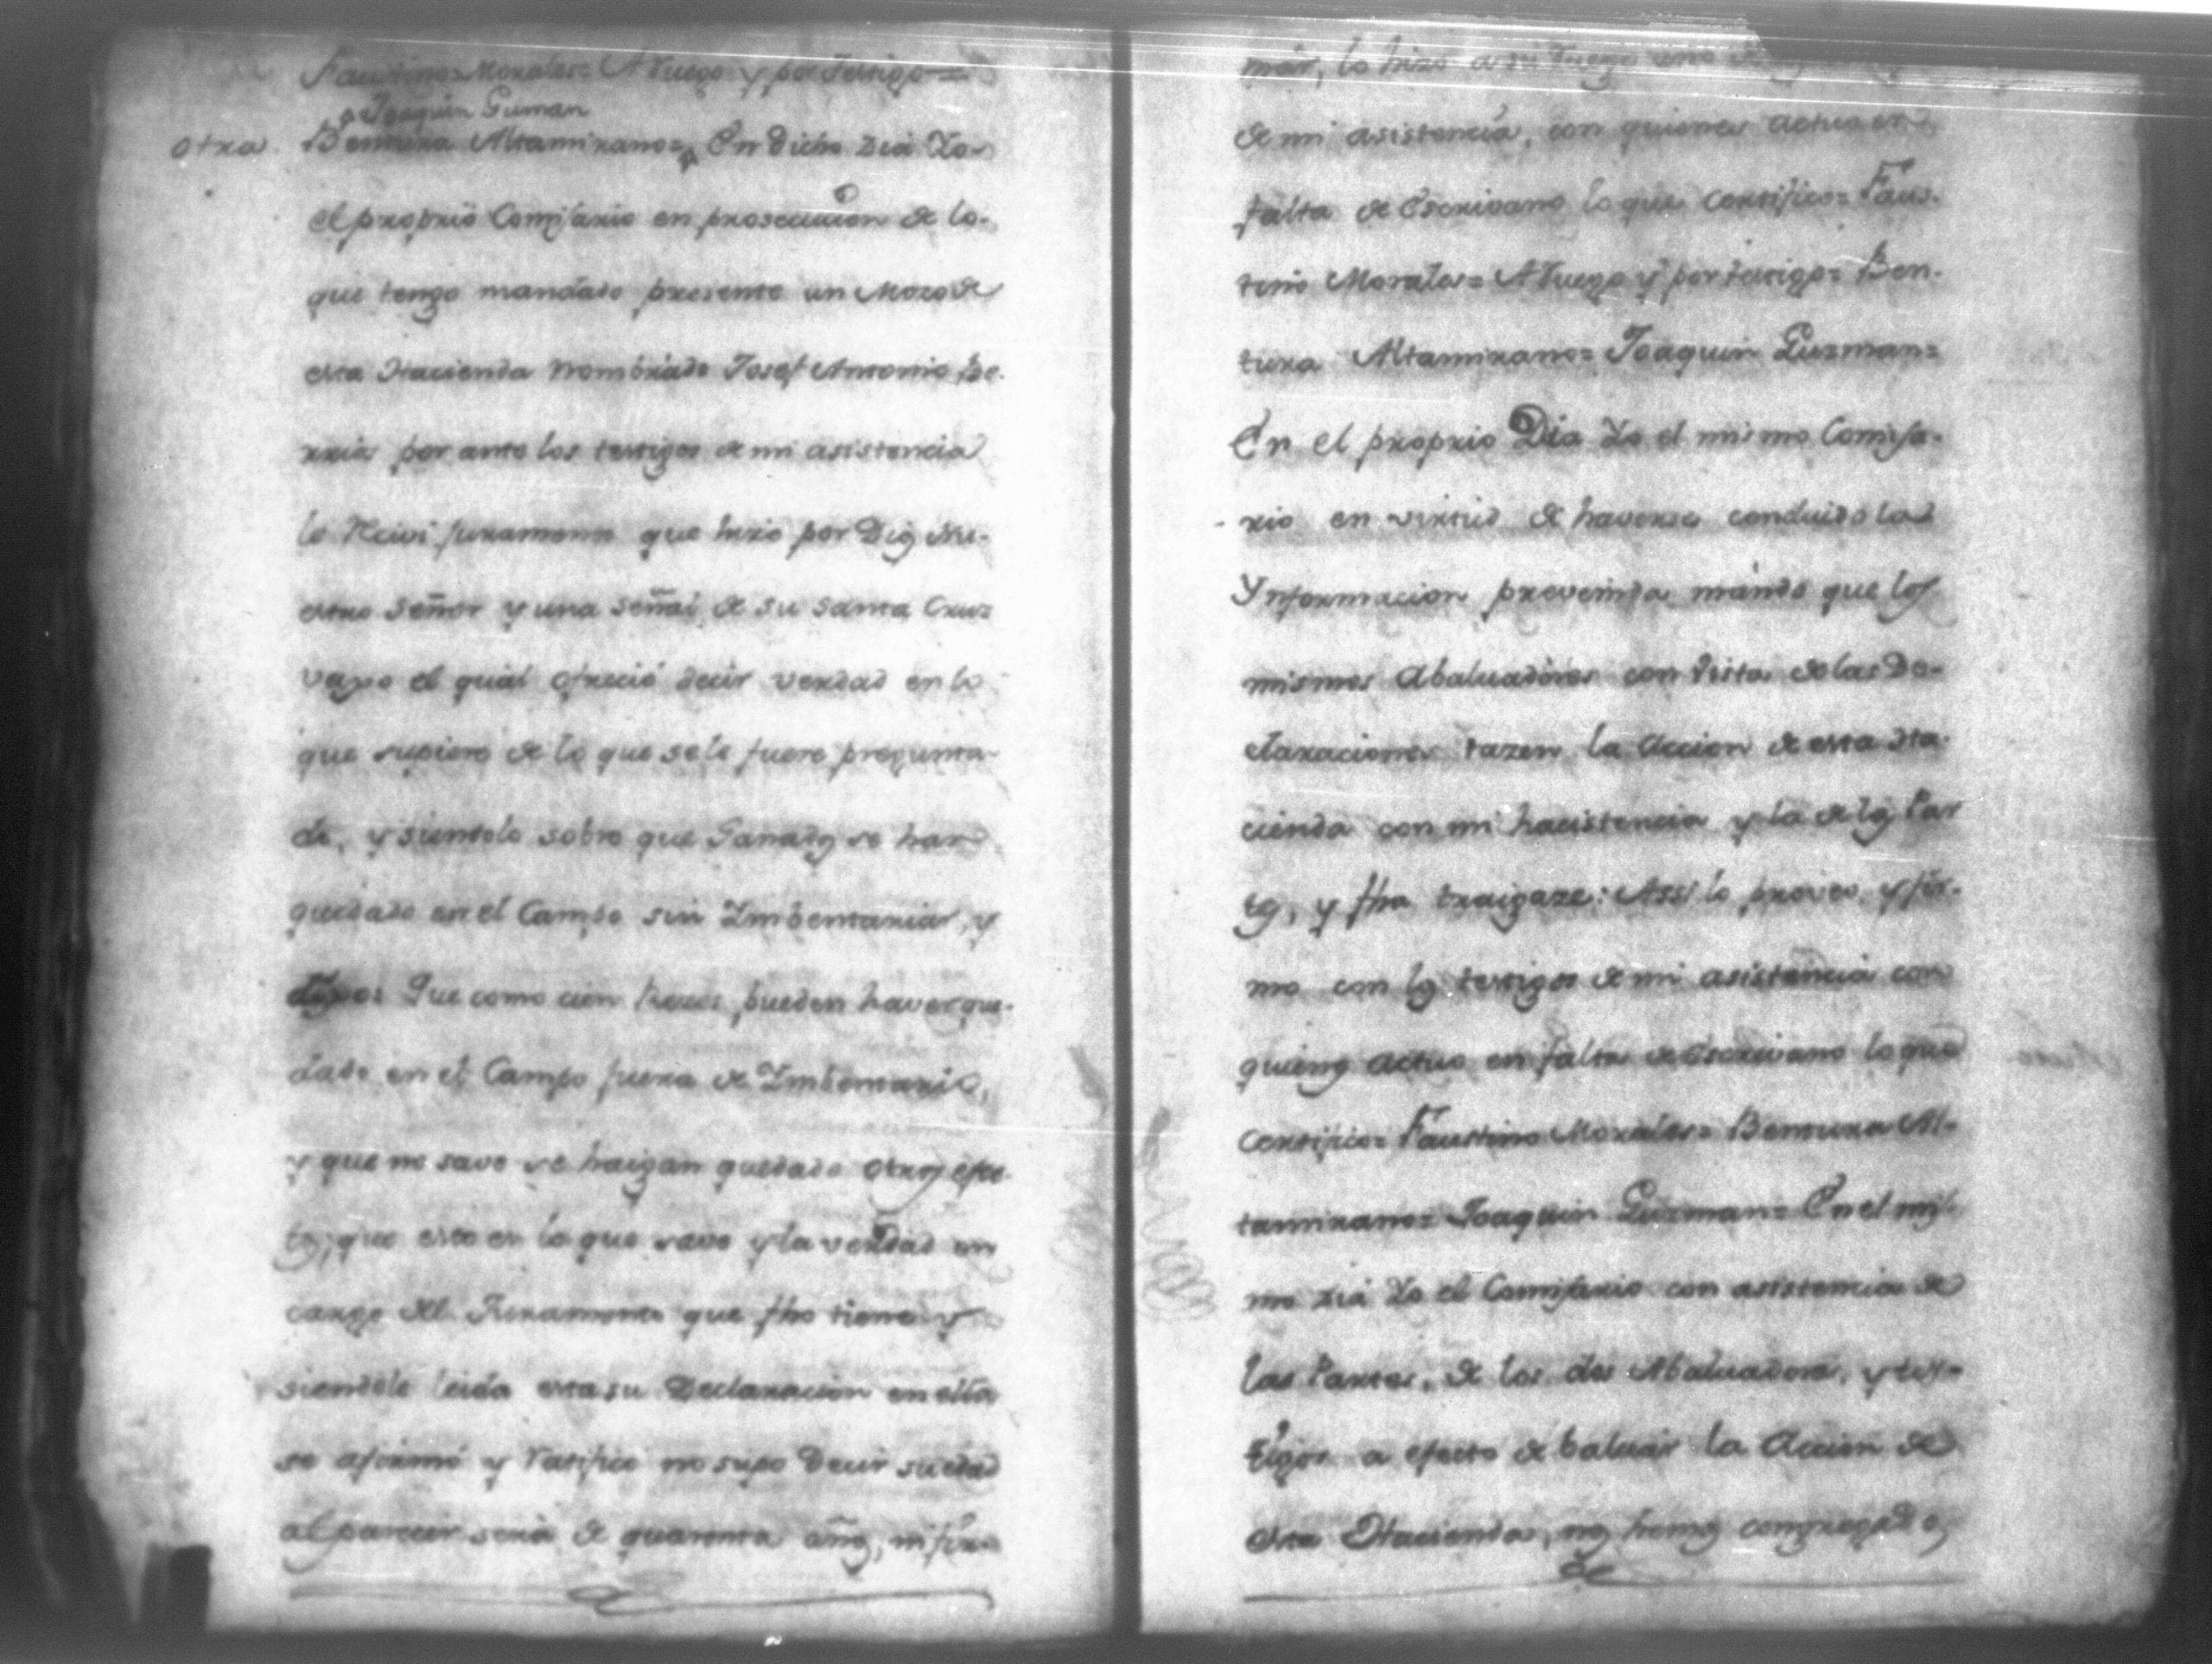 Faustino Morales= A Ruego y por testigo=
Joaquin Guman
otra Bentura Altamirano= En dicho Dia Yo
el proprio Comisario en prosecucion de lo
que tengo mandado presente un Mozo de
esta Hacienda nombrado Josef Antonio Be-
rrio por ante los testigos de mi asistencia
le Recivi Juramento que hizo por Dios Nu-
estro Señor y una señal de su Santa Cruz
vajo el qual ofreció decir verdad en lo
que supiere de lo que se le fuere pregunta-
do, y siendolo sobre que Ganados se han
quedado en el Campo sin Ymbentariar, y
dijo: Que como cien Rezes pueden haver que-
dado en el Campo fuera de Ymbentario,
y que no save se haigan quedado otros efec-
tos, que esto es lo que save y la verdad en
cargo del Juramento que fho tiene y
siendole leida esta su Declaracion en ella
se afirmó y ratificó no supo Decir su edad
al parecer sera de quarenta años, ni fir-
mar, lo hizo a su Ruego uno de
de mi asistencia, con quienes actuo en
falta de Escrivano lo que certifico= Faus-
tino Morales= A Ruego y por testigo= Ben-
tura Altamirano= Joaquin Guzman=
En el proprio Dia Yo el mismo Comisa-
rio en virtud de haverse conduido la
Ynformacion prevenida mando que los
mismos Abaluadores con vista de las De-
claraciones tazen la Accion de esta Ha-
cienda con mi hacistencia y la de las Par
tes, y fha traigaze: Assi lo proveo, y fir-
mo con los testigos de mi asistencia con
quienes actuo en falta de Escrivano lo que
certifico= Faustino Morales= Bentura Al-
tamirano= Joaquin Guzman= En el mis-
mo Dia Yo el Comisario con asistencia de
las Partes, de los dos Abaluadores, y tes-
tigos a efecto de baluar la Accion de
esta Hacienda, nos hemos congregado